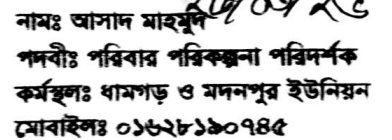 নামঃ আসাদ মাহমুদ
পদবীঃ পরিবার পরিকল্পনা পরিদর্শক
কর্মস্থলঃ ধামগড় ও মদনপুর ইউনিয়ন
মোবাইলঃ ০১৬২৮১৯০৭৪৫